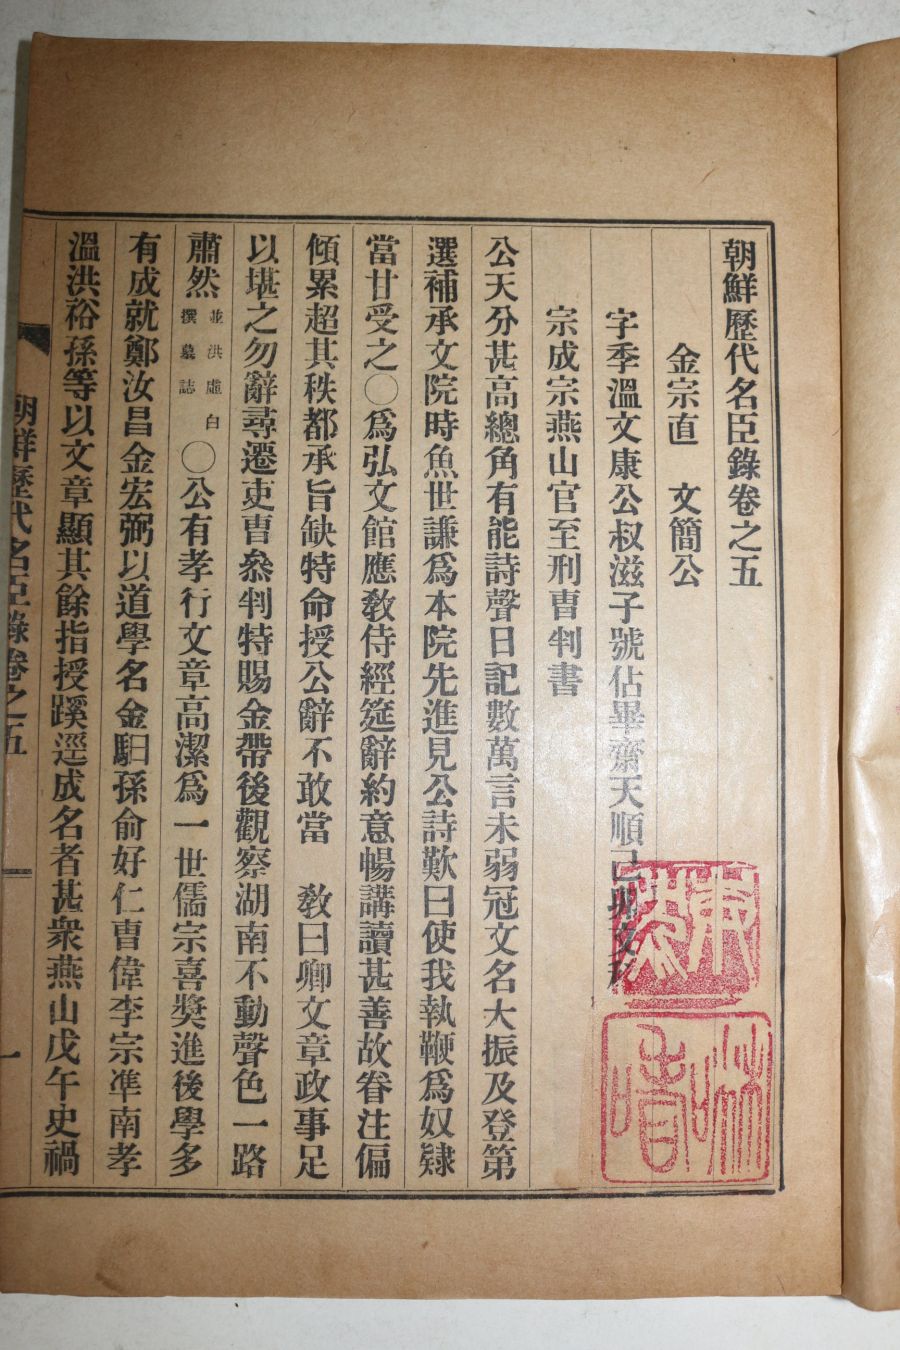 朝鮮歷代名臣錄卷之五
金宗直 文簡公
字季溫文康公叔滋子號佔畢齋天順己卯文科
宗成宗燕山官至刑曺判書
公天分甚高總角有能詩聲日記數萬言未弱冠文名大振及登第
選補承文院時魚世謙爲本院先進見公詩歎曰使我執鞭爲奴隷
當甘受之〇爲弘文館應敎侍經筵辭約意暢講讀甚善故眷注偏
傾累超其秩都承旨缺特命授公辭不敢當 敎曰卿文章政事足
以堪之勿辭尋遷吏曺叅判特賜金帶後觀察湖南不動聲色一路
肅然並洪虛白撰墓誌〇公有孝行文章高潔爲一世儒宗喜獎進後學多
有成就鄭汝昌金宏弼以道學名金馹孫俞好仁曺偉李宗準南孝
溫洪裕孫等以文章顯其餘指授蹊逕成名者甚衆燕山戊午史禍
朝鮮歷代名臣錄卷之五
一